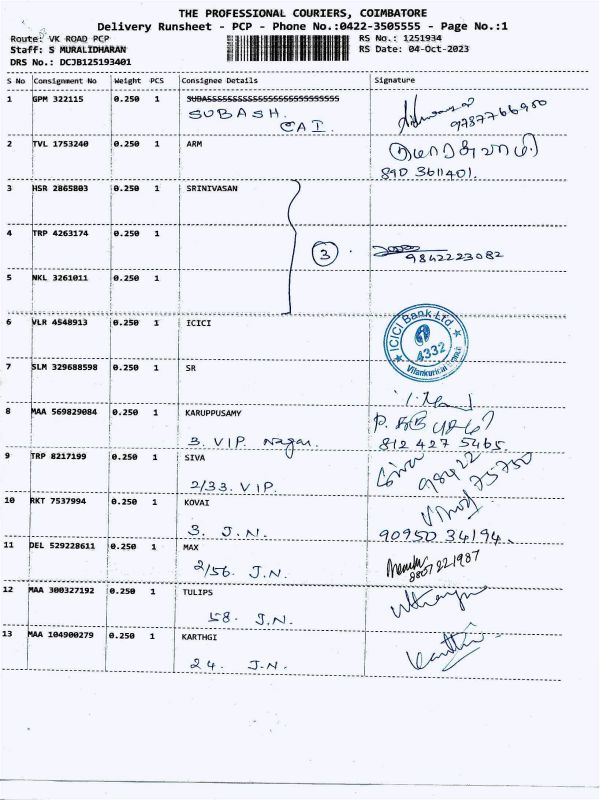 THE PROFESSIONAL COURIERS, COIMBATORE
Delivery Runsheet - PCP - Phone No.:0422-3505555 - Page No.:1
Route: VK ROAD PCP RS No.: 1251934
Staff: S MURALIDHARAN RS Date: 04-Oct-2023
DRS No.: DCJB125193401
S No Consignment No Weight PCS Consignee Details Signature
1 GPM 322115 0.250 1
SUBASH. 9787766950
CAI.
2 TVL 1753240 0.250 1 ARM
890 3611401.
3 HSR 2865803 0.250 1 SRINIVASAN
4 TRP 4263174 0.250 1
3 9842223082
5 NKL 3261011 0.250 1
6 VLR 4548913 0.250 1 ICICI
ICICI Bank Ltd.
4332
7 SLM 329688598 0.250 1 SR
8 MAA 569829084 0.250 1 KARUPPUSAMY
3. VIP. Nagar. 812 427 5465.
9 TRP 8217199 0.250 1 SIVA
Siva 98422 75750
2/33. V.I.P.
10 RKT 7537994 0.250 1 KOVAI
Vinod
3. J.N. 90950 34194.
11 DEL 529228611 0.250 1 MAX
2/56. J.N. 8807221987
12 MAA 300327192 0.250 1 TULIPS
58. J.N.
13 MAA 104900279 0.250 1 KARTHGI
24. J.N. Karthi